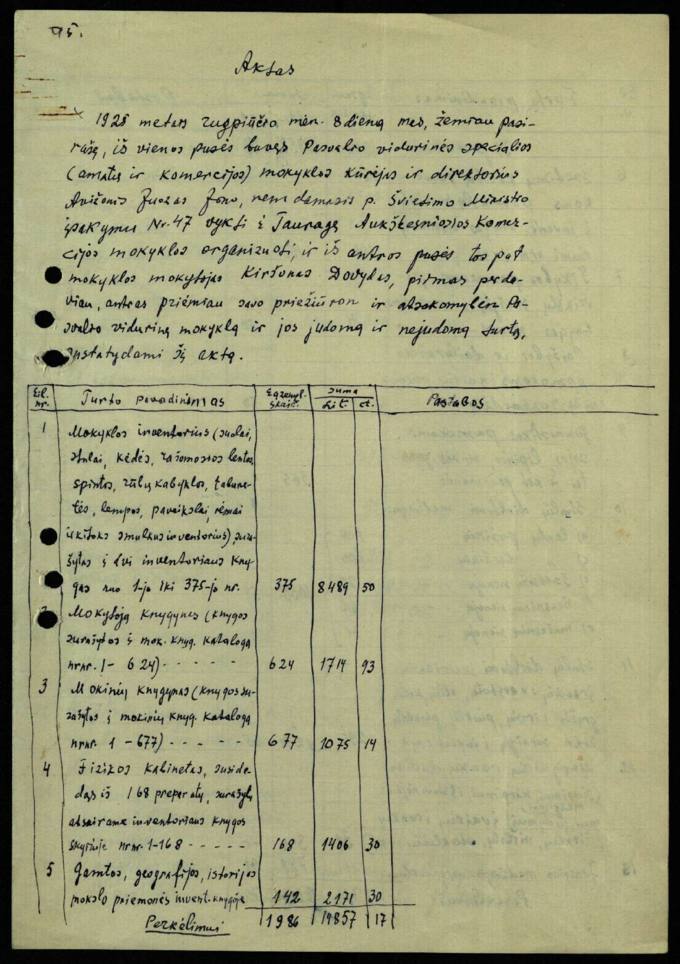 95.
Aktas
1925 metais rugpiūčio mėn. 8 dieną mes, žemiau pasi-
rašę, iš vienos pusės buvęs Pasvalio vidurinės specialios
(amatų ir komercijos) mokyklos kūrėjas ir direktorius
Avižonis Juozas Jono, remdamasis p. Švietimo Ministro
įsakymu Nr. 47 vykti į Tauragę Aukštesniosios Komer-
cijos mokyklos organizuoti, ir iš antros pusės tos pat
mokyklos mokytojas Kiršonas Dovydas, pirmas perda-
viau, antras priėmiau savo priežiūron ir atsakomybėn Pa-
svalio vidurinę mokyklą ir jos judomą ir nejudomą turtą,
sustatydami šį aktą.
Eil. nr. Turto pavadinimas Egzempl. skaič. Suma Lit. ct. Pastabos
1 Mokyklos inventorius (suolai,
stalai, kėdės, rašomosios lentos
spintos, rūbų kabyklos, tabure-
tės, lempos, paveikslai, rėmai
ir kitoks smulkus inventorius), sura-
šytas į dvi inventoriaus kny-
gas nuo 1-jo iki 375-jo nr. 375 8489 50
2 Mokytojų knygynas (knygos
surašytos į mok. knyg. katalogą
nrnr. 1 - 624) - - - - - 624 1714 93
3 Mokinių knygynas (knygos su-
rašytos į mokinių knyg. katalogą
nrnr. 1 - 677) - - - - - 677 1075 14
4 Fizikos kabinetas, suside-
dąs iš 168 preparatų, surašytų
atskirame inventoriaus knygos
skyriuje nrnr. 1-168 - - - - - 168 1406 30
5 Gamtos, geografijos, istorijos
mokslo priemonės invent. knygoje 142 2171 30
Perkėlimui 1986 19857 17